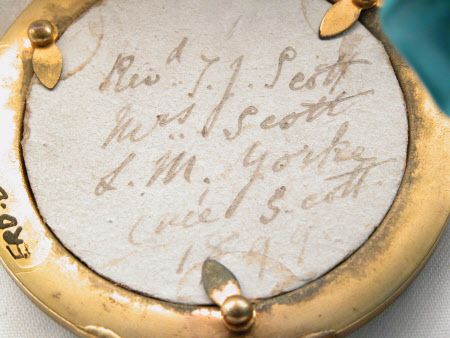 Revd T. J. Scott
Mrs Scott
L. M. Yorke
Scott
1899
ERD.